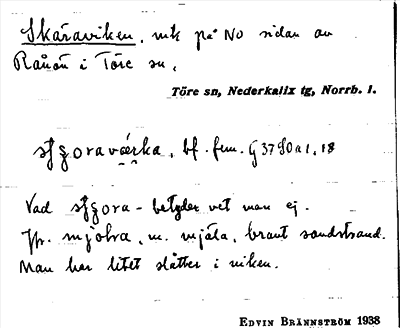 Skäraviken, vik på NO sidan av
Rånön i Töre sn.
Töre sn, Nederkalix tg, Norrb. l.
bf. fem. G 37 80 a 1, 18
Vad betyder vet man ej.
Jfr. m. mjäla, brant sandstrand.
Man har litet slåtter i viken.
EDVIN BRÄNNSTRÖM 1938